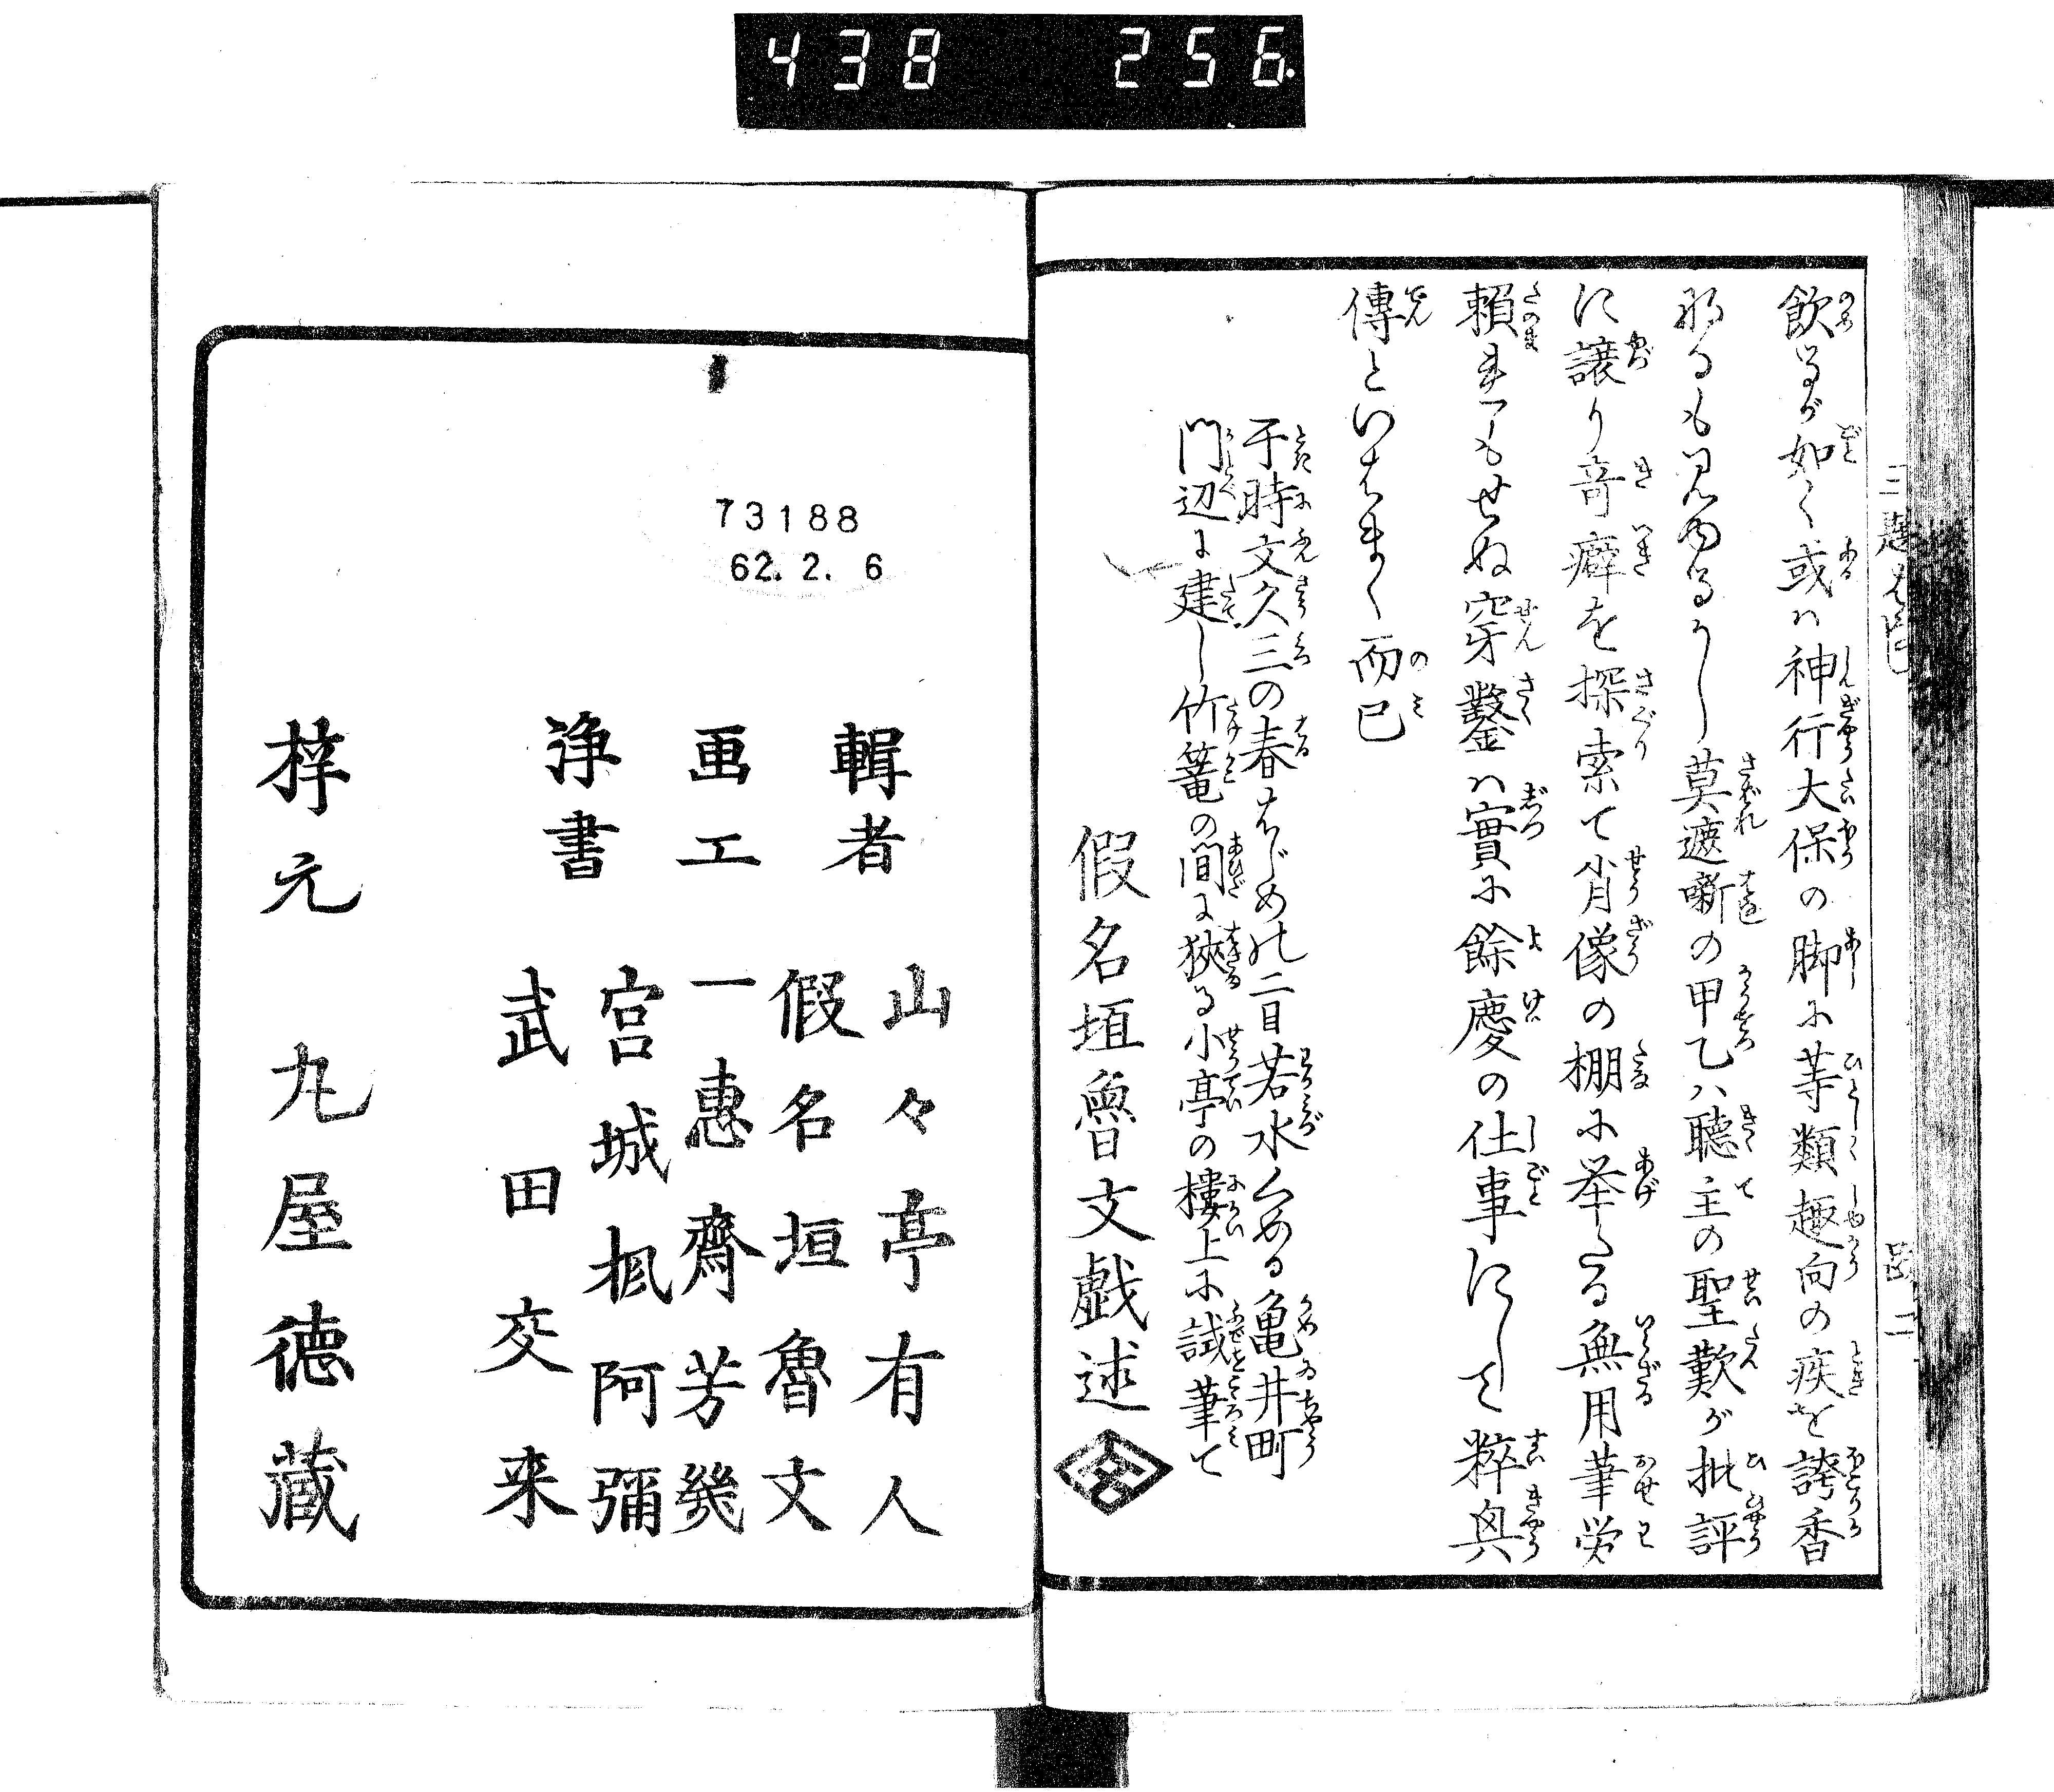 438 256.
飲るが如く或ハ神行大保の脚に等類趣向の疾を誇香
莫遮噺の甲乙ハ聴主の聖歎が批評
に譲り竒癖を探索て肖像の棚に挙たる無用筆労
頼れもせぬ穿鑿ハ實に餘慶の仕事にして粹奥
傳といはまく而已
于時文久三の春はじめの二日若水くめる亀井町
門辺に建し竹篭の間に狹る小亭の樓上に試筆て
假名垣魯文戯述
73188
62. 2. 6
輯者 山々亭有人
假名垣魯文
画工 一惠齋芳幾
浄書 宮城枫阿彌
武田交来
梓元 丸屋徳藏